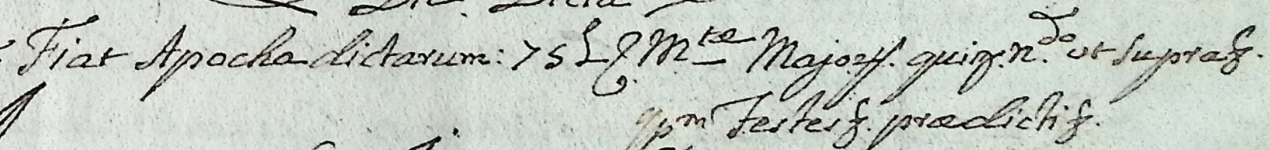 Fiat Apocha dictarum: 75 L Mte Majori. quiq. n.do ut supra
Testes prædicti